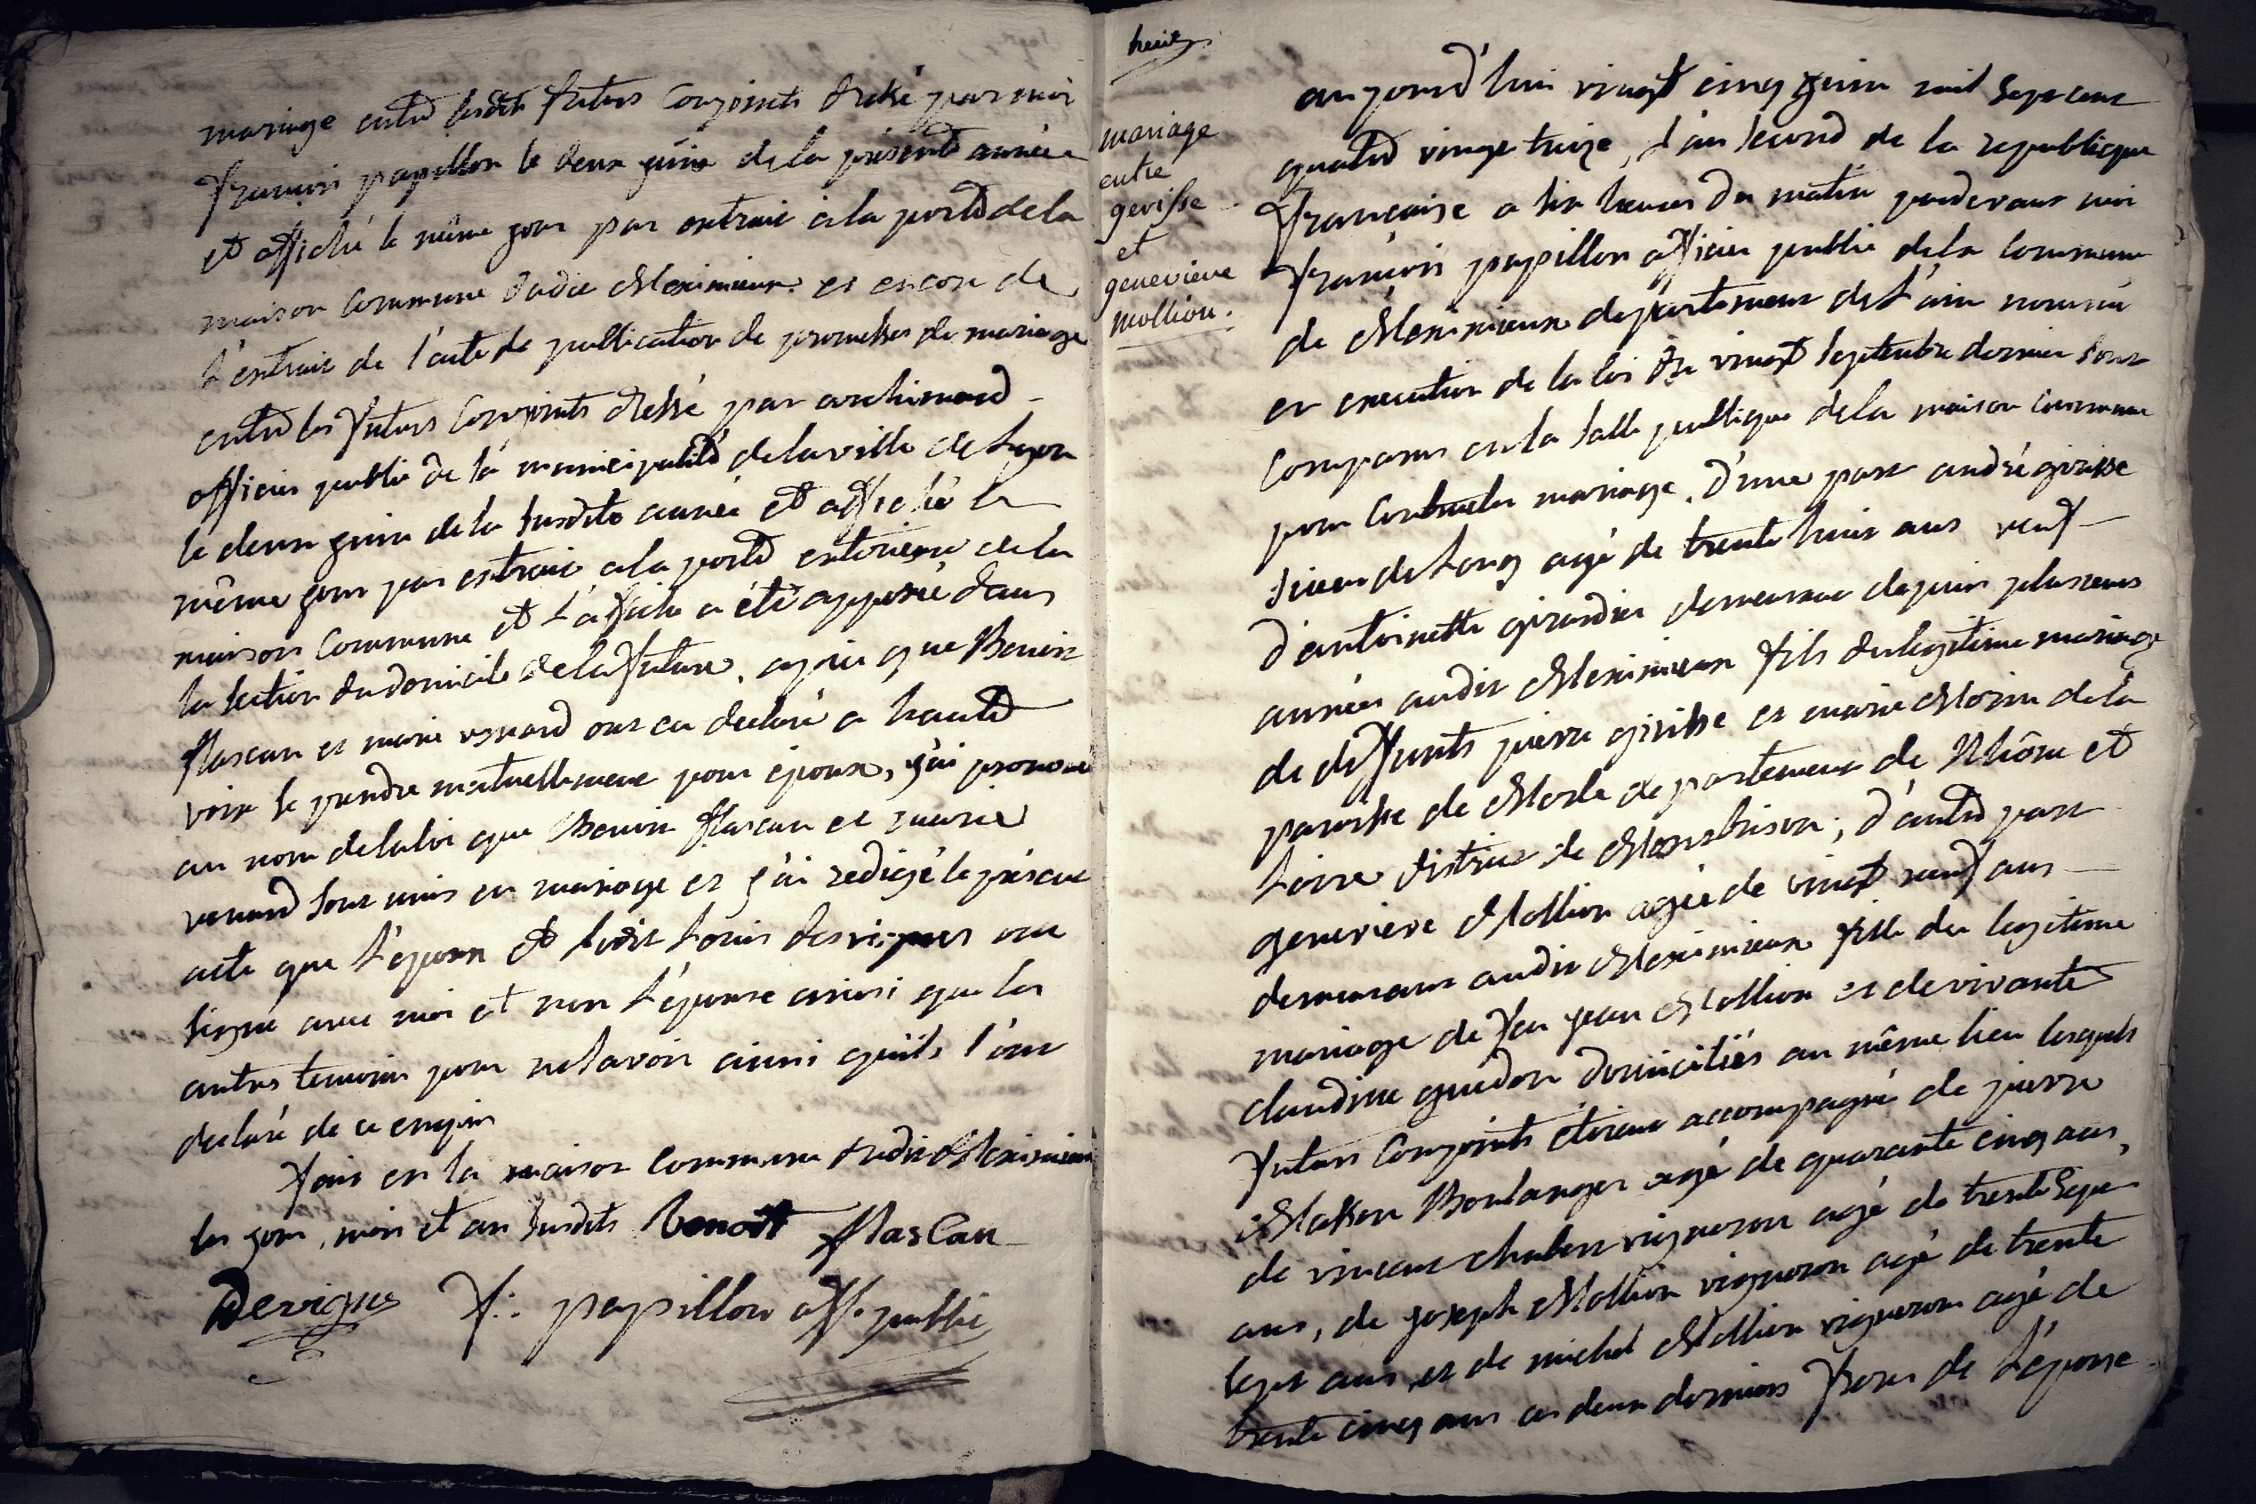 mariage entre lesdits futurs conjoints dressé par moi
françois papillon le deux juin de la présente année
et affiché le même jour par extrait à la porte de la
maison commune dudit Meximieux et encore de
l'extrait de l'acte de publication de promesses de mariage
entre les futurs conjoints dressé par archimard
officier public de la municipalité de la ville de Lyon
le deux juin de la susdite année et affiché le
même jour par extrait a la porte exterieure de la
maison commune et l'affiche a été apposée dans
la section du domicile de la future, après que Benoit
Mascan et marie renard ont eu declaré a haute
voix se prendre mutuellement pour epoux, j'ai prononcé
au nom de la loi que Benoit Mascan et marie
renard sont unis en mariage et j'ai redigé le présent
acte que l'epoux et ledit Louis desvignes ont
signé avec moi et non l'épouse ainsi que les
autres temoins pour ne savoir ainsi qu'ils l'ont
declaré de ce enquis
fait en la maison commune dudit Meximieux
les jour, mois et an susdits Benoit Mascan
Devigne f: papillon off. public
huit
mariage
entre
gerisse
et
genevieve
mollion.
aujourd'hui vingt cinq juin mil sept cent
quatre vingt treize, l'an second de la republique
françoise a six heures du matin pardevant moi
françois papillon officier public de la commune
de Meximieux departement de l'ain nommé
en execution de la loi du vingt septembre dernier sont
comparus en la salle publique de la maison commune
pour contracter mariage, d'une part andré girisse
sieur de Long agé de trente huit ans veuf
d'antoinette girardier demeurant depuis plusieurs
années audit Meximieux fils du legitime mariage
de deffunts pierre girisse et marie Morin de la
paroisse de departement de Rhône et
Loire district de Montbrison; d'autre part
genevieve Mollion agée de vingt neuf ans
demeurant audit Meximieux fille du legitime
mariage de feu jean Mollion et de vivante
claudine guédon domiciliés au même lieu lesquels
futurs conjoints etoient accompagné de pierre
Masson Boulanger agé de quarante cinq ans,
de vincent vigneron agé de trente sept
ans, de joseph Mollion vigneron agé de trente
sept ans, et de michel Mollion vigneron agé de
trente cinq ans ces deux derniers freres de l'épouse